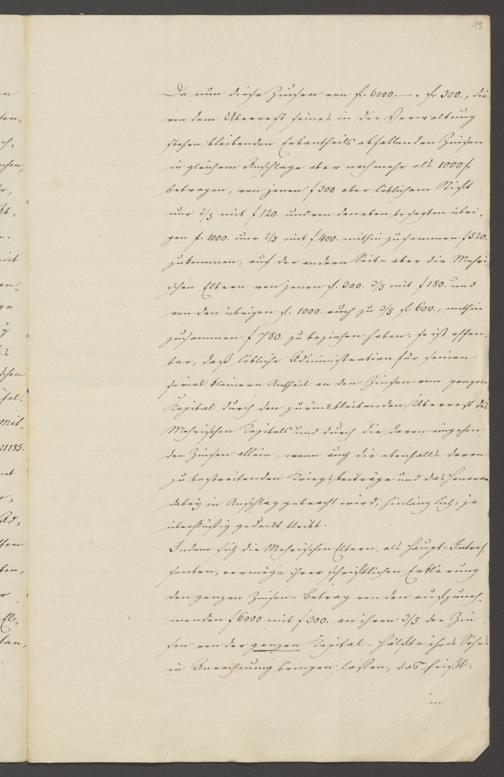 13
Da nun diese Zinsen von f. 6000. — . f. 300., die
von dem Überrest seines in der Verwaltung
stehen bleibenden Erbantheils abfallenden Zinsen
in gleichem Anschlage aber noch mehr als 1000 f.
betragen, von jenen f 300 aber löblichem Stift
nur 2/5 mit f 120. und von den eben besagten übri-
gen f. 1000. nur 2/5 mit f 400. mithin zusammen f 520.
zukommen, auf der andern Seite aber die Mehri-
schen Eltern von jenen f. 300. 3/5 mit f 180. und
von den übrigen f. 1000. auch zu 3/5 f 600., mithin
zusammen f 780. zu beziehen haben: so ist offen-
bar, daß löbliche Administration für seinen
kleinern Antheil an den Zinsen vom ganzen
Kapital durch den zurückbleibenden Überrest des
Mehrischen Kapitals und durch die davon eingehen
den Zinsen allein, wenn auch die ebenfalls davon
zu bestreitenden Kriegsbeiträge und das Honorar
dabey in Anschlag gebracht wird, hinlänglich, ja
überflüssig gedeckt bleibt.
Indem sich die Mehrischen Eltern, als Haupt-Intres
senten, vermöge ihrer schriftlichen Erklärung
den ganzen Zinsen-Betrag von den aufzuneh-
menden f 6000 mit f 300. an ihren 3/5 der Zin
sen von der ganzen Kapital-Hälfte ihres Sohns
in Anrechnung bringen lassen, das heißt:
im
mit
21185.